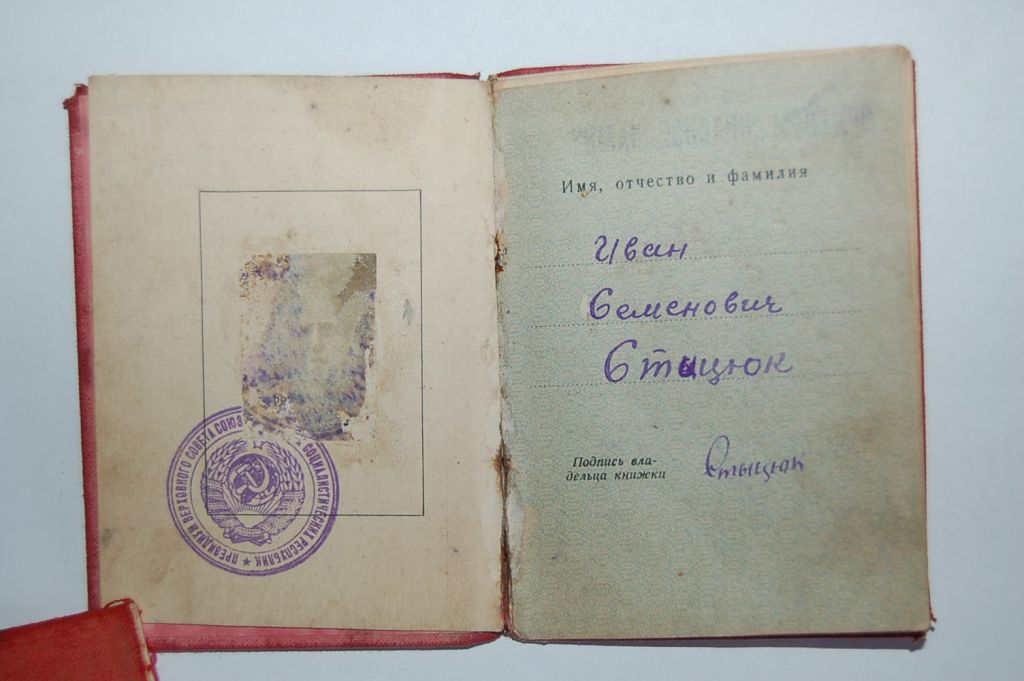 ПРЕЗИДИУМ ВЕРХОВНОГО СОВЕТА СОЮЗ СОЦИАЛИСТИЧЕСКИХ РЕСПУБЛИК ★
Имя, отчество и фамилия
Иван
Семенович
Стыцюк
Подпись вла-
дельца книжки
Стыцюк